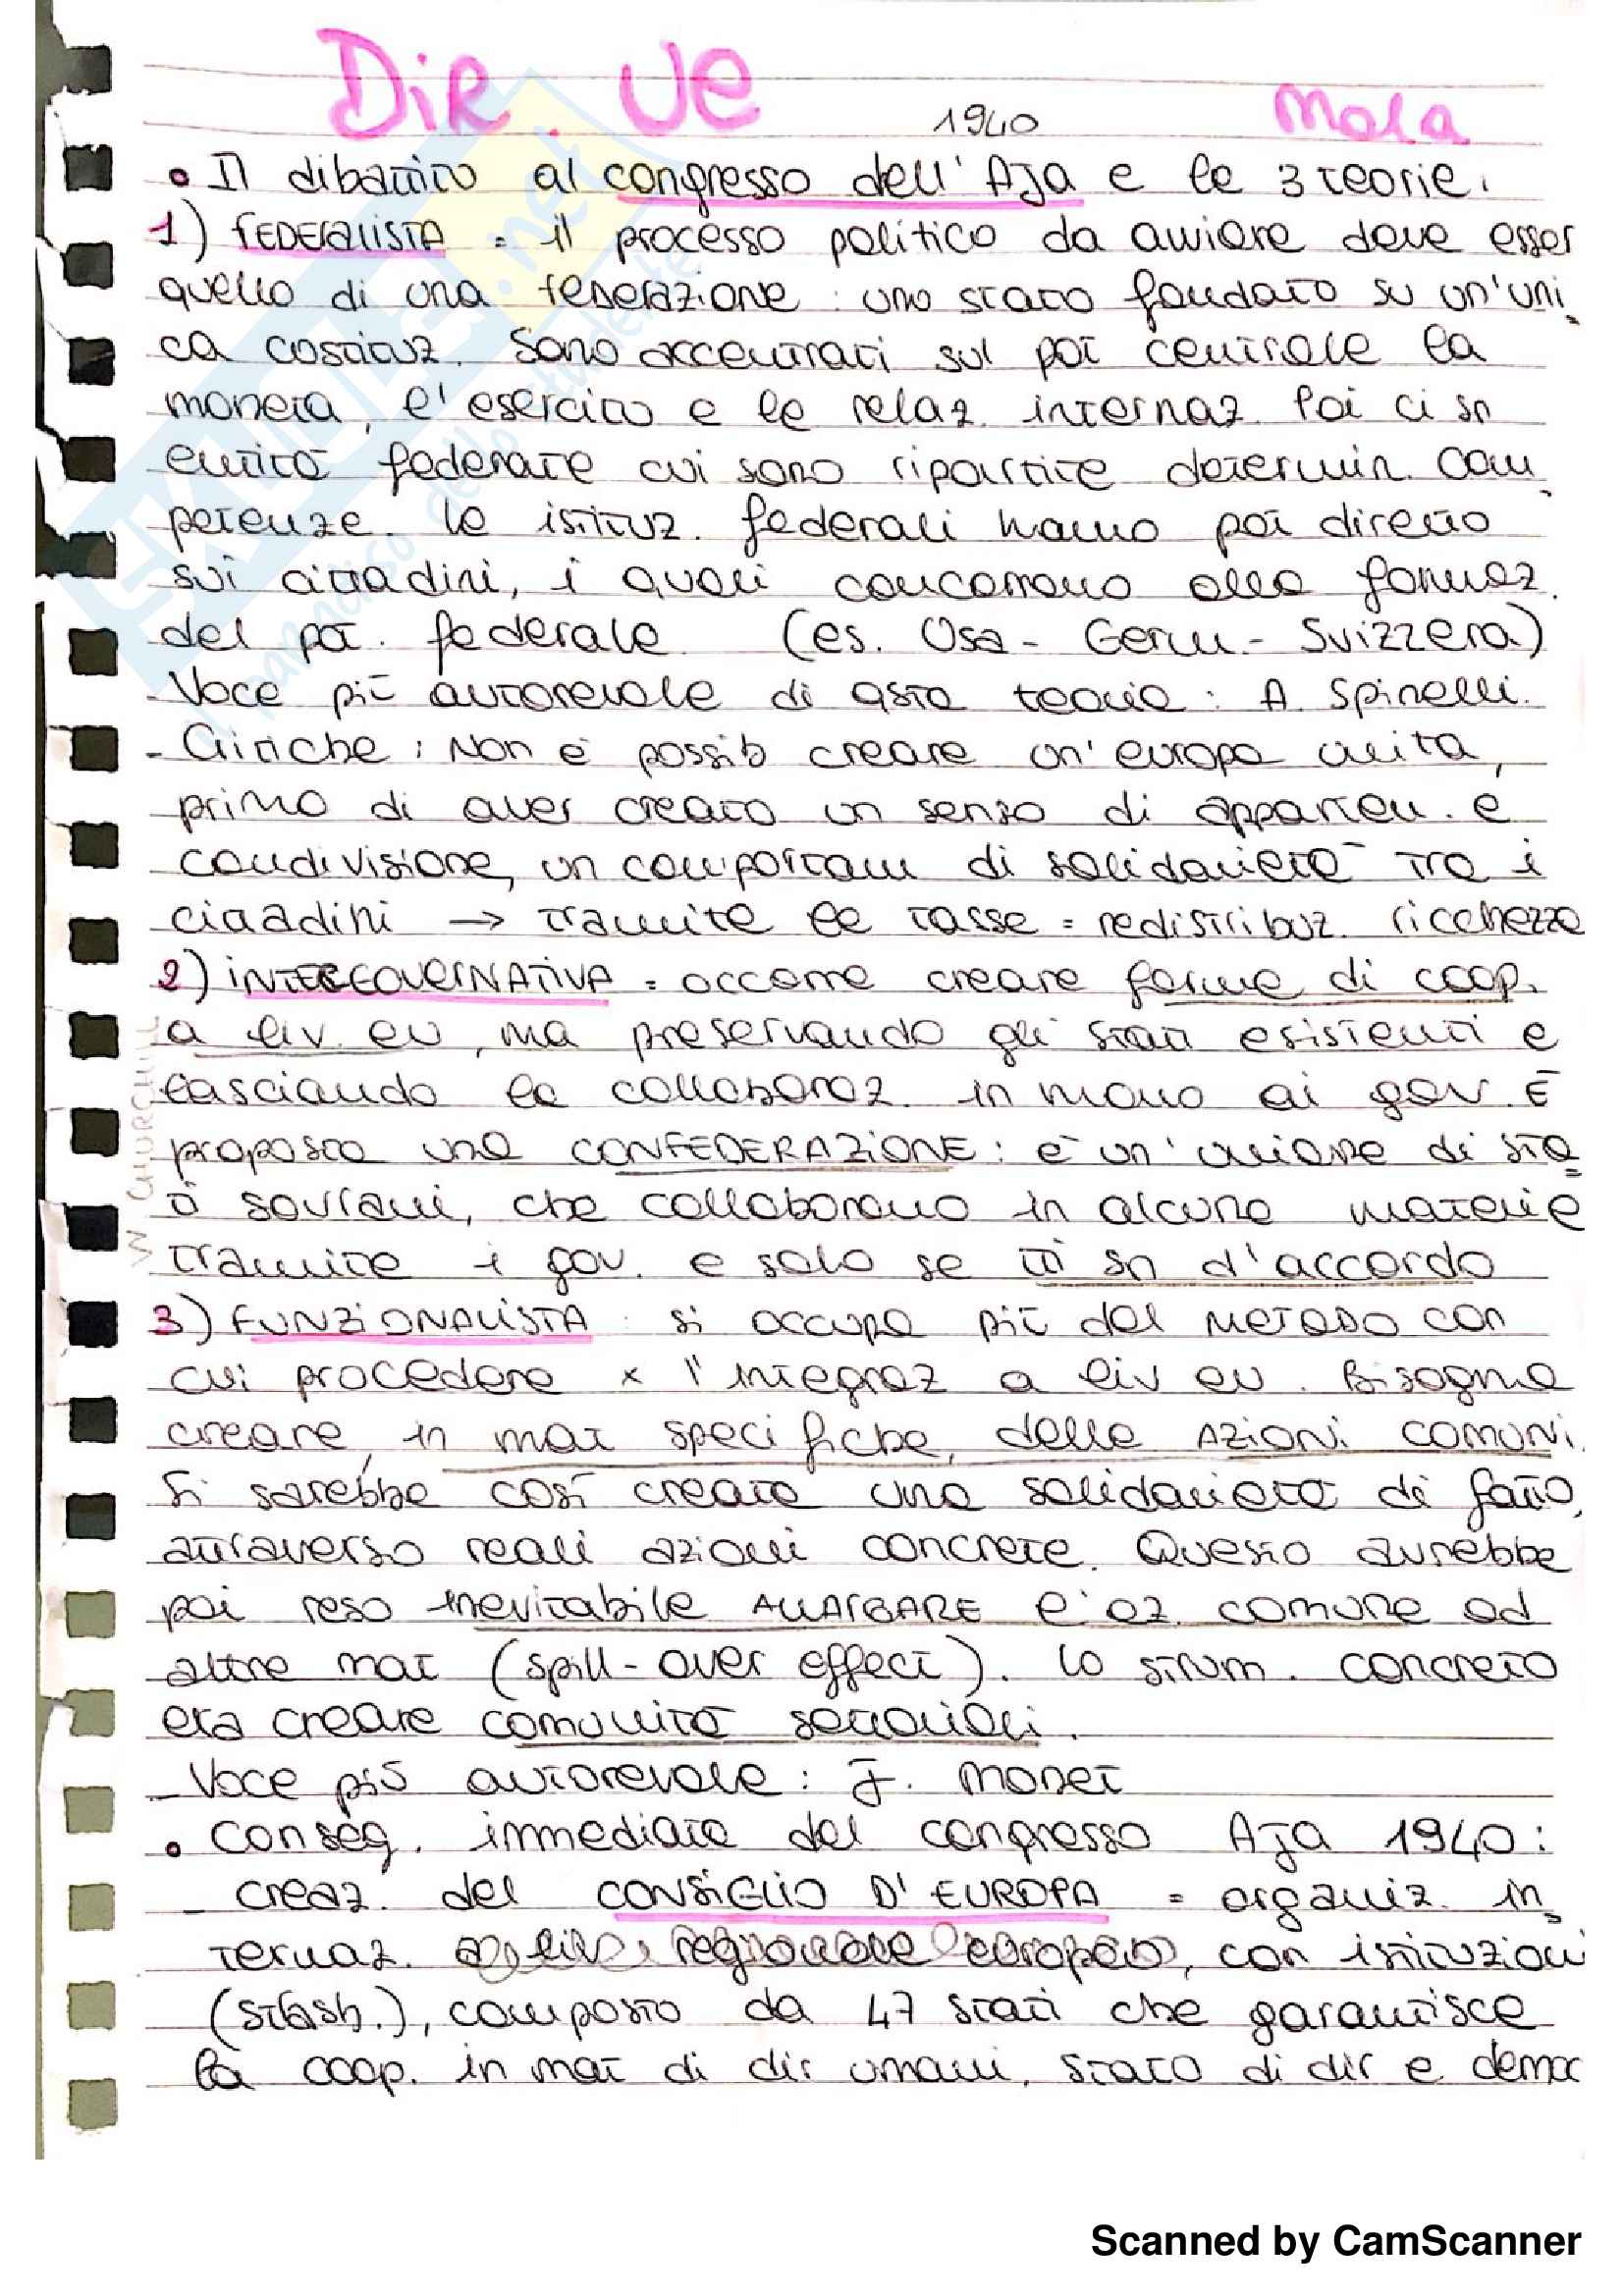 DiR. UE
1940
Mola
• Il dibattito al congresso dell'Aja e le 3 teorie.
1) FEDERALISTA = il processo politico da avviare deve esser
quello di una federazione: uno stato fondato su un'uni
ca costituz. Sono accentrati sul pot centrale la
moneta, l'esercito e le relaz. internaz. Poi ci sn
entità federate cui sono ripartite determin. com
petenze. Le istituz. federali hanno pot diretto
sui cittadini, i quali concorrono alla formaz.
del pot. federale (es. Usa - Germ - Svizzera)
- Voce più autorevole di qsta teoria: A. Spinelli.
- Critiche: Non è possib creare un'europa unita,
prima di aver creato un senso di apparten. e
condivisione, un comportam di solidarietà tra i
cittadini → tramite le tasse = redistribuz. ricchezza
2) INTERGOVERNATIVA = occorre creare forme di coop.
a liv. eu, ma preservando gli stati esistenti e
lasciando la collaboraz. in mano ai gov. È
proposta una CONFEDERAZIONE: è un'unione di sta
ti sovrani, che collaborano in alcune materie
tramite i gov. e solo se tti sn d'accordo
W CHURCHILL
3) FUNZIONALISTA: si occupa più del METODO con
cui procedere x l'integraz a liv eu. Bisogna
creare, in mat specifiche, delle AZIONI COMUNI.
Si sarebbe così creata una solidarietà di fatto,
attraverso reali azioni concrete. Questo avrebbe
poi reso inevitabile ALLARGARE l'az. comune ad
altre mat (spill-over effect). Lo strum. concreto
era creare comunità settoriali.
- Voce più autorevole: J. Monet
• Conseg. immediata del congresso Aja 1940:
- creaz. del CONSIGLIO D'EUROPA = organiz. in
ternaz. a liv. regionale europeo, con istituzioni
(Strasb.), composto da 47 stati che garantisce
la coop. in mat di dir umani, stato di dir e democ
SKUOLA.net
il paradiso dello studente
Scanned by CamScanner